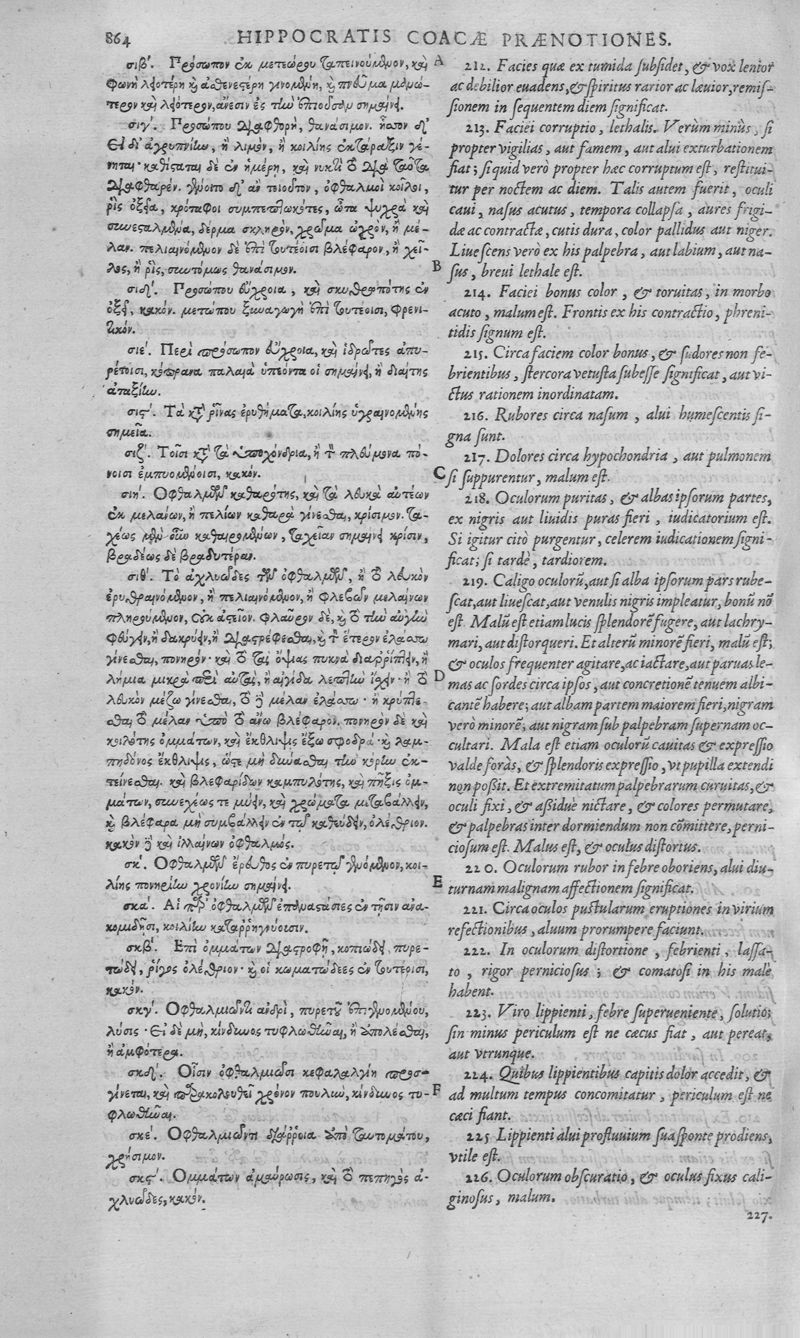 864 HIPPOCRATIS COACÆ PRÆNOTIONES.
σιβʹ. Πρόσωπον ἐκ μετεώρου ταπεινούμενον, καὶ
φωνὴ λειοτέρη καὶ ἀσθενεστέρη γινομένη, καὶ πνεῦμα
καὶ λειότερον, ἄνεσιν ἐς τὴν ἐπιοῦσαν σημαίνει.
σιγʹ. Προσώπου διαφθορὴ, θανάσιμον. ἧσσον δʹ
εἰ δι' ἀγρυπνίην, ἢ λιμὸν, ἢ κοιλίης ἐκτάραξιν γέ-
νηται· καθίσταται δὲ ἐν ἡμέρῃ, καὶ νυκτὶ τὸ διὰ ταῦτα
διαφθαρέν. γένοιτο δʹ ἂν τοιοῦτον, ὀφθαλμοὶ κοῖλοι,
ῥὶς ὀξεῖα, κρόταφοι συμπεπτωκότες, ὦτα ψυχρὰ καὶ
συνεσταλμένα, δέρμα σκληρὸν, χρῶμα ὠχρὸν, ἢ μέ-
λαν. πελιαινόμενον δὲ ἐπὶ τουτέοισι βλέφαρον, ἢ χεῖ-
λος, ἢ ῥὶς, συντόμως θανάσιμον.
σιδʹ. Προσώπου εὔχροια, καὶ σκυθρωπότης ἐν
ὀξεῖ, κακόν. μετώπου ξυναγωγὴ ἐπὶ τουτέοισι, φρενι-
τικόν.
σιεʹ. Περὶ πρόσωπον εὔχροια, καὶ ἱδρῶτες ἀπυ-
ρέτοισι, κόπρανα παλαιὰ ὑπεόντα οἱ σημαίνει, ἢ διαίτης
ἀταξίην.
σιϛʹ. Τὰ κατὰ ῥῖνας ἐρυθήματα, κοιλίης ὑγραινομένης
σημεῖα.
σιζʹ. Τοῖσι κατὰ τὰ ὑποχόνδρια, ἢ τὸν πλεύμονα πό-
νοισι ἐμπυομένοισι, κακόν.
σιηʹ. Οφθαλμῶν καθαρότης, καὶ τὰ λευκὰ αὐτέων
ἐκ μελάνων, ἢ πελίων καθαρὰ γίνεσθαι, κρίσιμον. τα-
χέως μὲν οὖν καθαιρομένων, ταχεῖαν σημαίνει κρίσιν,
βραδέως δὲ βραδυτέραν.
σιθʹ. Τὸ ἀχλυῶδες τῶν ὀφθαλμῶν, ἢ τὸ λευκὸν
ἐρυθραινόμενον, ἢ πελιαινόμενον, ἢ φλεβίων μελαίνων
πληρούμενον, οὐκ ἀστεῖον. φλαῦρον δὲ, καὶ τὸ τὴν αὐγὴν
φεύγειν, ἢ δακρύειν, ἢ διαστρέφεσθαι, καὶ τὸν ἕτερον ἐλάσσω
γίνεσθαι, πονηρόν· καὶ τὸ τὰς ὄψιας πυκνὰ διαρρίπτειν, ἢ
λήμια μικρὰ περὶ αὐτὰς, ἢ αἰγίδα λεπτὴν ἴσχειν· ἢ τὸ
λευκὸν μέζω γίνεσθαι, τὸ δὲ μέλαν ἐλάσσω· ἢ κρύπτε-
σθαι τὸ μέλαν ὑπὸ τὸ ἄνω βλέφαρον. πονηρὸν δὲ καὶ
κοιλότης ὀμμάτων, καὶ ἔκθλιψις ἔξω σφοδρά· καὶ λαμ-
πηδόνος ἔκθλιψις, ὥστε μὴ δύνασθαι τὴν κόρην ἐκ-
τείνεσθαι. καὶ βλεφαρίδων καμπυλότης, καὶ πῆξις ὀμ-
μάτων, συνεχέως τε μύειν, καὶ χρώματα μεταβάλλειν,
καὶ βλέφαρα μὴ συμβάλλειν ἐν τῷ καθεύδειν, ὀλέθριον.
κακὸν δὲ καὶ ἰλλαίνων ὀφθαλμός.
σκʹ. Οφθαλμῶν ἔρευθος ἐν πυρετῷ γενόμενον, κοι-
λίης πονηρίην χρονίην σημαίνει.
σκαʹ. Αἱ παρ' ὀφθαλμῶν ἐπάρσιες ἐν τῇσιν ἀνα-
κομιδῇσι, κοιλίην καταρρηγνύουσιν.
σκβʹ. Επὶ ὀμμάτων διαστροφῇ, κοπιώδει, πυρε-
τώδει, ῥῖγος ὀλέθριον· καὶ οἱ κωματώδεες ἐν τουτέοισι,
κακόν.
σκγʹ. Οφθαλμιῶντι ἀνδρὶ, πυρετοῦ ἐπιγενομένου,
λύσις· εἰ δὲ μὴ, κίνδυνος τυφλωθῆναι, ἢ ἀπολέσθαι,
ἢ ἀμφότερα.
σκδʹ. Οἷσιν ὀφθαλμιῶσι κεφαλαλγίη προσ-
γίνεται, καὶ παρακολουθεῖ χρόνον πουλὺν, κίνδυνος τυ-
φλωθῆναι.
σκεʹ. Οφθαλμιῶντι διάρροια ἀπὸ ταυτομάτου,
χρήσιμον.
σκϛʹ. Ομμάτων ἀμαύρωσις, καὶ τὸ πεπηγὸς ἀ-
χλυῶδες, κακόν.
A 212. Facies quæ ex tumida subsidet, & vox lenior
ac debilior euadens, & spiritus rarior ac læuior, remis-
sionem in sequentem diem significat.
213. Faciei corruptio, lethalis. Verùm minùs, si
propter vigilias, aut famem, aut alui exturbationem
fiat; si quid verò propter hæc corruptum est, restitui-
tur per noctem ac diem. Talis autem fuerit, oculi
caui, nasus acutus, tempora collapsa, aures frigi-
dæ ac contractæ, cutis dura, color pallidus aut niger.
Liuescens verò ex his palpebra, aut labium, aut na-
B sus, breui lethale est.
214. Faciei bonus color, & toruitas, in morbo
acuto, malum est. Frontis ex his contractio, phreni-
tidis signum est.
215. Circa faciem color bonus, & sudores non fe-
brientibus, stercora vetusta subesse significat, aut vi-
ctus rationem inordinatam.
216. Rubores circa nasum, alui humescentis si-
gna sunt.
217. Dolores circa hypochondria, aut pulmonem
C si suppurentur, malum est.
218. Oculorum puritas, & albas ipsorum partes,
ex nigris aut liuidis puras fieri, iudicatorium est.
Si igitur citò purgentur, celerem iudicationem signi-
ficat; si tardè, tardiorem.
219. Caligo oculorū, aut si alba ipsorum pars rube-
scat, aut liuescat, aut venulis nigris impleatur, bonū nō
est. Malū est etiam lucis splendorē fugere, aut lachry-
mari, aut distorqueri. Et alterū minorē fieri, malū est;
& oculos frequenter agitare, ac iactare, aut paruas le-
D mas ac sordes circa ipsos, aut concretionē tenuem albi-
cantē habere; aut albam partem maiorem fieri, nigram
verò minorē; aut nigram sub palpebram supernam oc-
cultari. Mala est etiam oculorū cauitas & expressio
valde foràs, & splendoris expressio, vt pupilla extendi
non possit. Et extremitatum palpebrarum curuitas, &
oculi fixi, & assiduè nictare, & colores permutare,
& palpebras inter dormiendum non cōmittere, perni-
ciosum est. Malus est, & oculus distortus.
220. Oculorum rubor in febre oboriens, alui diu-
E turnam malignam affectionem significat.
221. Circa oculos pustularum eruptiones in virium
refectionibus, aluum prorumpere faciunt.
222. In oculorum distortione, febrienti, lassa-
to, rigor perniciosus; & comatosi in his malè
habent.
223. Viro lippienti, febre superueniente, solutio;
sin minus periculum est ne cæcus fiat, aut pereat,
aut vtrunque.
224. Quibus lippientibus capitis dolor accedit, &
F ad multum tempus concomitatur, periculum est ne
cæci fiant.
225 Lippienti alui profluuium sua sponte prodiens,
vtile est.
226. Oculorum obscuratio, & oculus fixus cali-
ginosus, malum.
227.